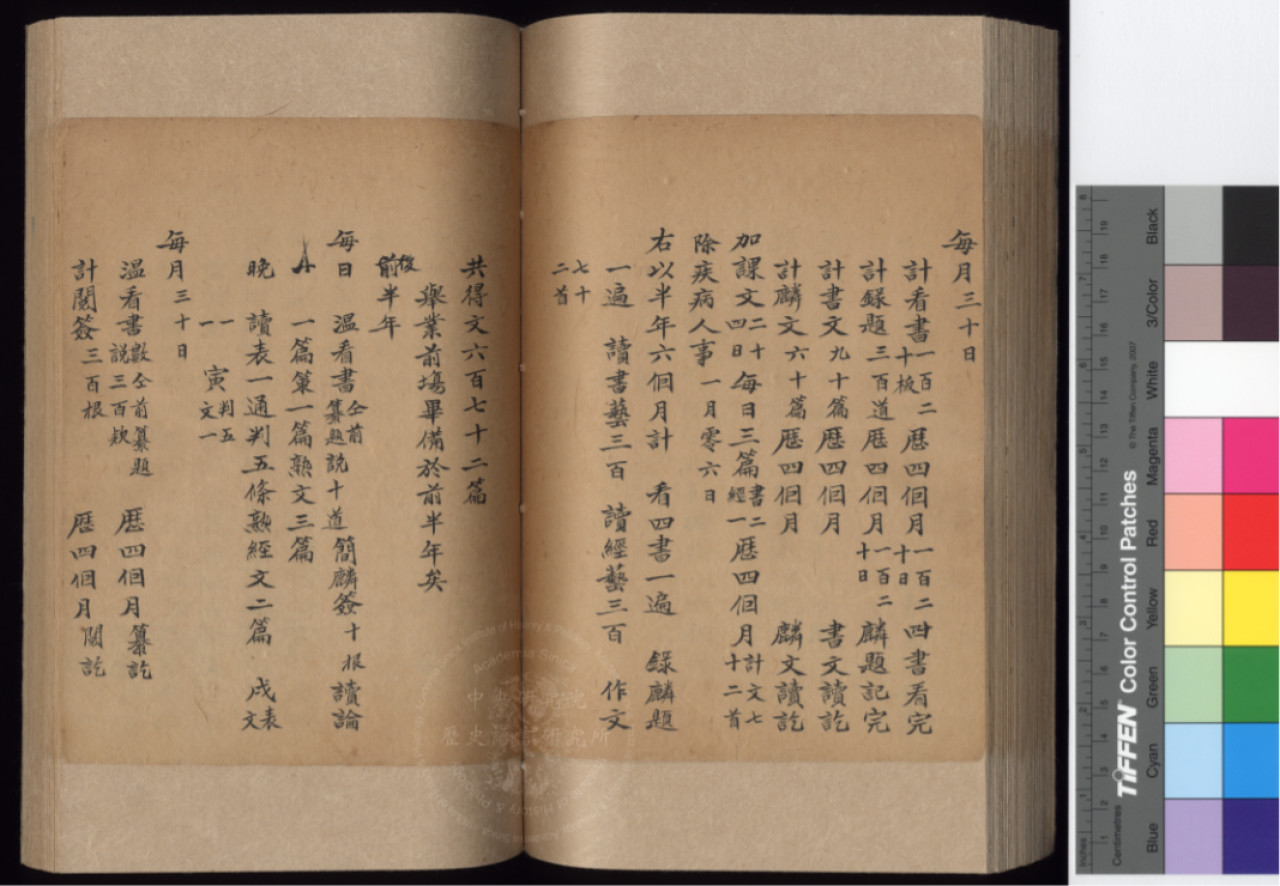 每月三十日
計看書一百二十板歷四個月一百二十日四書看完
計録題三百道歷四個月一百二十日麟題記完
計書文九十篇歷四個月 書文讀訖
計麟文六十篇歷四個月 麟文讀訖
加課文二十四日每日三篇書二經一歷四個月計文七十二首
除疾病人事一月零六日
右以半年六個月計 看四書一遍 錄麟題
一遍 讀書藝三百 讀經藝三百 作文
七十二首
共得文六百七十二篇
舉業前場畢備於前半年矣
後半年
每日 溫看書仝前纂題説十道簡麟簽十根讀論
一篇策一篇熟文三篇
晚 讀表一通判五條熟經文二篇 戌表文
一一 寅判五文一
每月三十日
溫看書數仝前纂題説三百欵 歷四個月纂訖
計閱簽三百根 歷四個月閱訖
中央研究院
歷史語言研究所
Academia Sinica
Institute of History &
TIFFEN Color Control Patches
© The Tiffen Company, 2007
Centimetres
Inches
Blue
Cyan
Green
Yellow
Red
Magenta
White
3/Color
Black